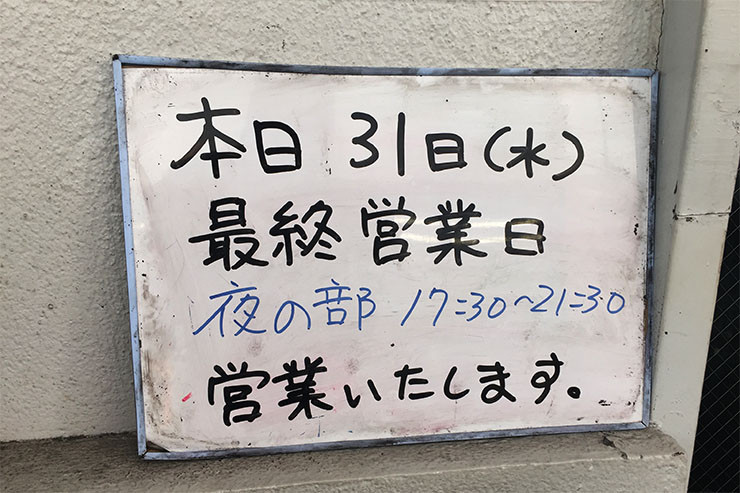 本日 31日(水)
最終営業日
夜の部 17:30~21:30
営業いたします。